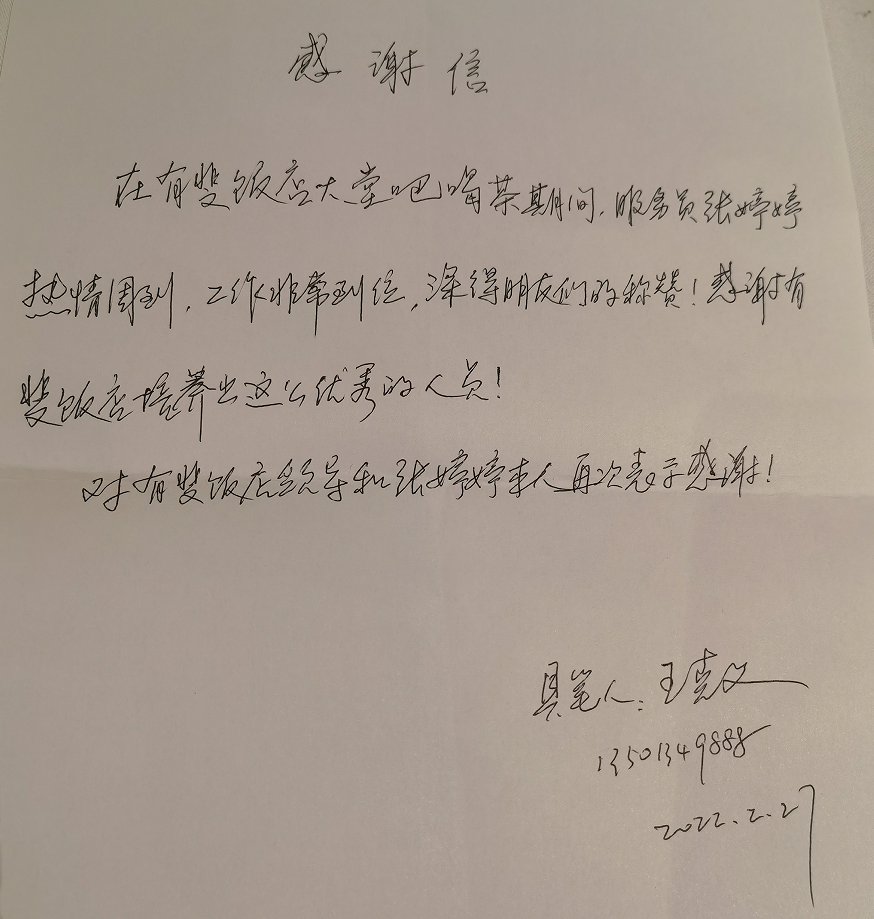 感谢信
在有斐饭店大堂吧喝茶期间,服务员张婷婷
热情周到,工作非常到位,深得朋友们的称赞!感谢有
斐饭店培养出这么优秀的人员!
对有斐饭店领导和张婷婷本人再次表示感谢!
具笔人:王克文
13501349888
2022.2.27